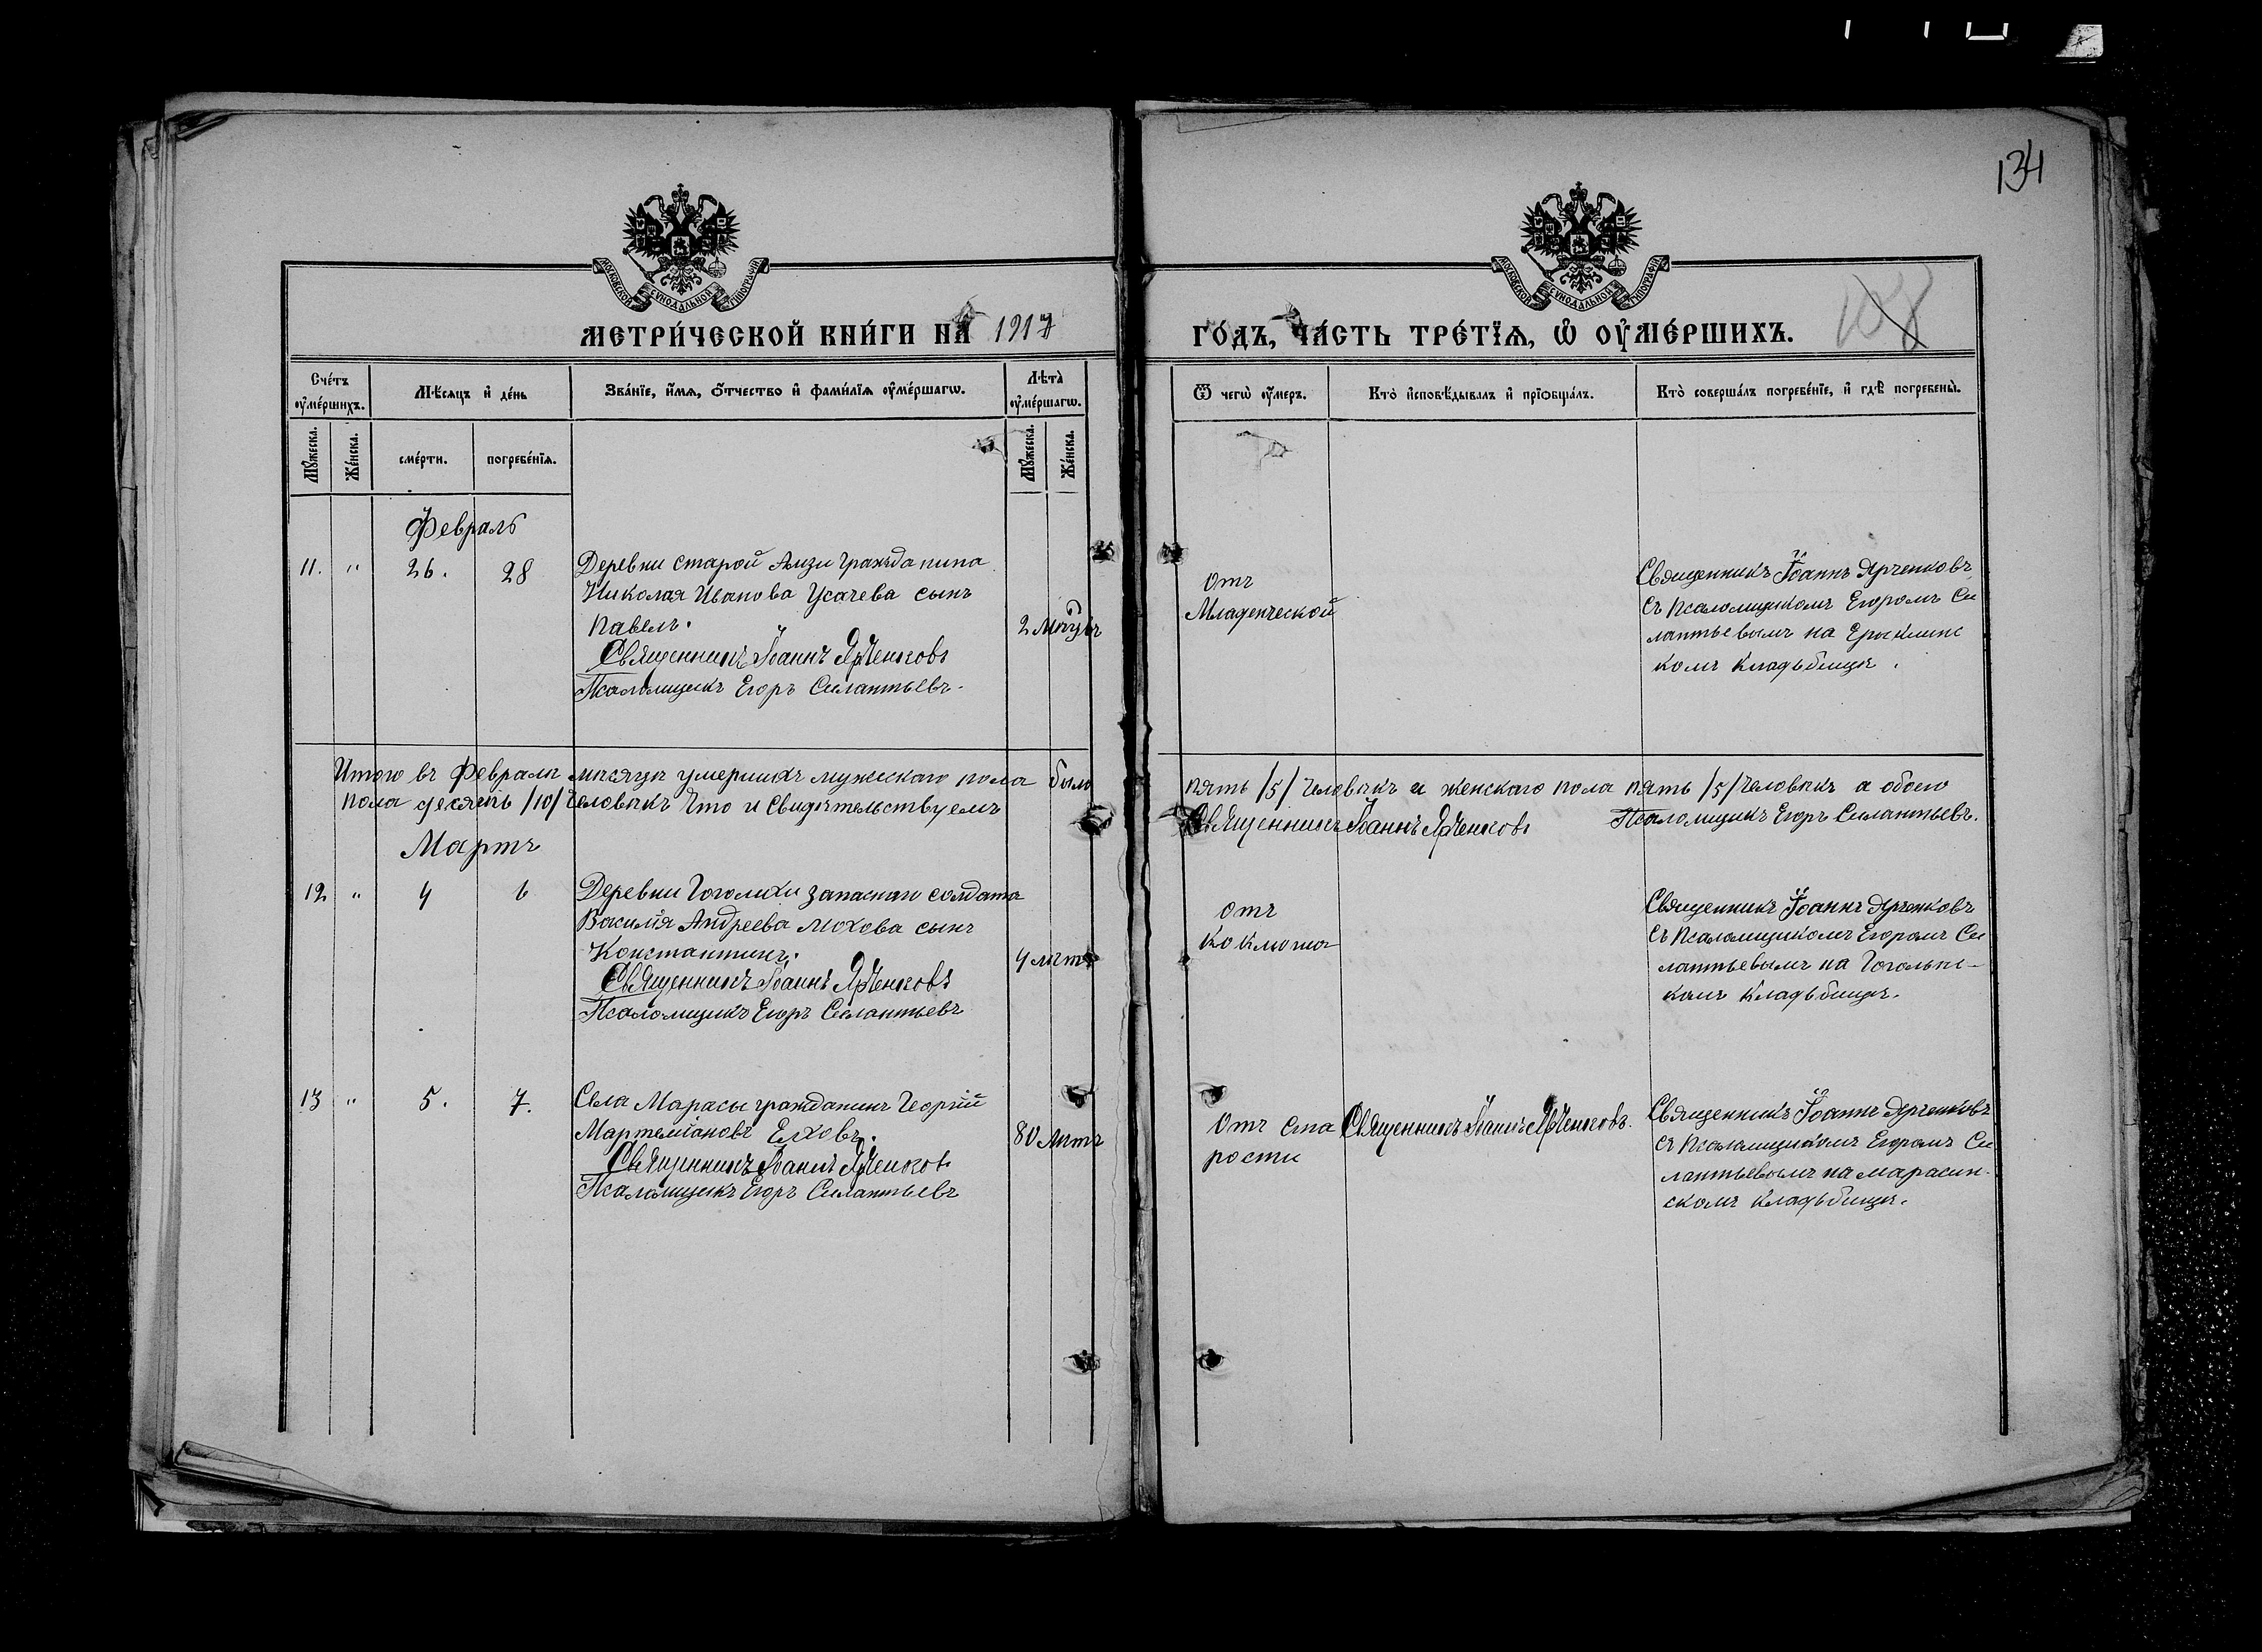 134
108
МОСКОВСКОЙ СѴНОДАЛЬНОЙ ТИПОГРАФІИ
МОСКОВСКОЙ СѴНОДАЛЬНОЙ ТИПОГРАФІИ
МЕТРИ́ЧЕСКОЙ КНИ́ГИ НА 1917 ГО́ДЪ, ЧА́СТЬ ТРЕ́ТЇѦ, Ѡ҆ ОУ҆МЕ́РШИХЪ.
Сче́тъ оу҆ме́ршихъ.
Мѣ́сяцъ и҆ де́нь
Зва́нїе, и҆́мѧ, ѻ҆́тчество и҆ фами́лїѧ оу҆ме́ршагѡ.
Лѣ́та̀ оу҆ме́ршагѡ.
Ѿ чегѡ̀ оу҆́меръ.
Кто̀ и҆сповѣ́дывалъ и҆ прїѡбща́лъ.
Кто̀ соверша́лъ погребе́нїе, и҆ гдѣ̀ погребены̀.
Мꙋ́жеска.
Же́нска.
сме́рти.
погребе́нїѧ.
Мꙋ́жеска.
Же́нска.
Февраль
11. " 26. 28
Деревни Старой Амзи гражданина
Николая Иванова Усачева сынъ
Павелъ.
Священникъ Іоаннъ Ярченковъ
Псаломщикъ Егоръ Силантьевъ.
2
Отъ
Младенческой
Священникъ Іоаннъ Ярченковъ
съ псаломщикомъ Егоромъ Си
лантьевымъ на Ерыклинс
комъ кладьбищѣ.
Итого въ Февралѣ мѣсяцѣ умершихъ мужескаго пола было пять /5/ человѣкъ и женскаго пола пять /5/ человѣкъ а обоего
пола десять /10/ человѣкъ Что и Свидѣтельствуемъ Священникъ Іоаннъ Ярченковъ Псаломщикъ Егоръ Силантьевъ.
Мартъ
12 " 4 6
Деревни Гоголихи запаснаго солдата
Василія Андреева Мохова сынъ
Константинъ.
Священникъ Іоаннъ Ярченковъ
Псаломщикъ Егоръ Силантьевъ
4 лѣтъ
отъ
коклюша
Священникъ Іоаннъ Ярченковъ
съ псаломщикомъ Егоромъ Си
лантьевымъ на Гогольс-
комъ кладьбищѣ.
13 " 5. 7.
Села Марасы гражданинъ Георгій
Мартеміановъ Елховъ.
Священникъ Іоаннъ Ярченковъ
Псаломщикъ Егоръ Силантьевъ
80 лѣтъ
Отъ ста
рости
Священникъ Іоаннъ Ярченковъ.
Священникъ Іоаннъ Ярченковъ
съ псаломщикомъ Егоромъ Си
лантьевымъ на Марасин-
скомъ кладьбищѣ.